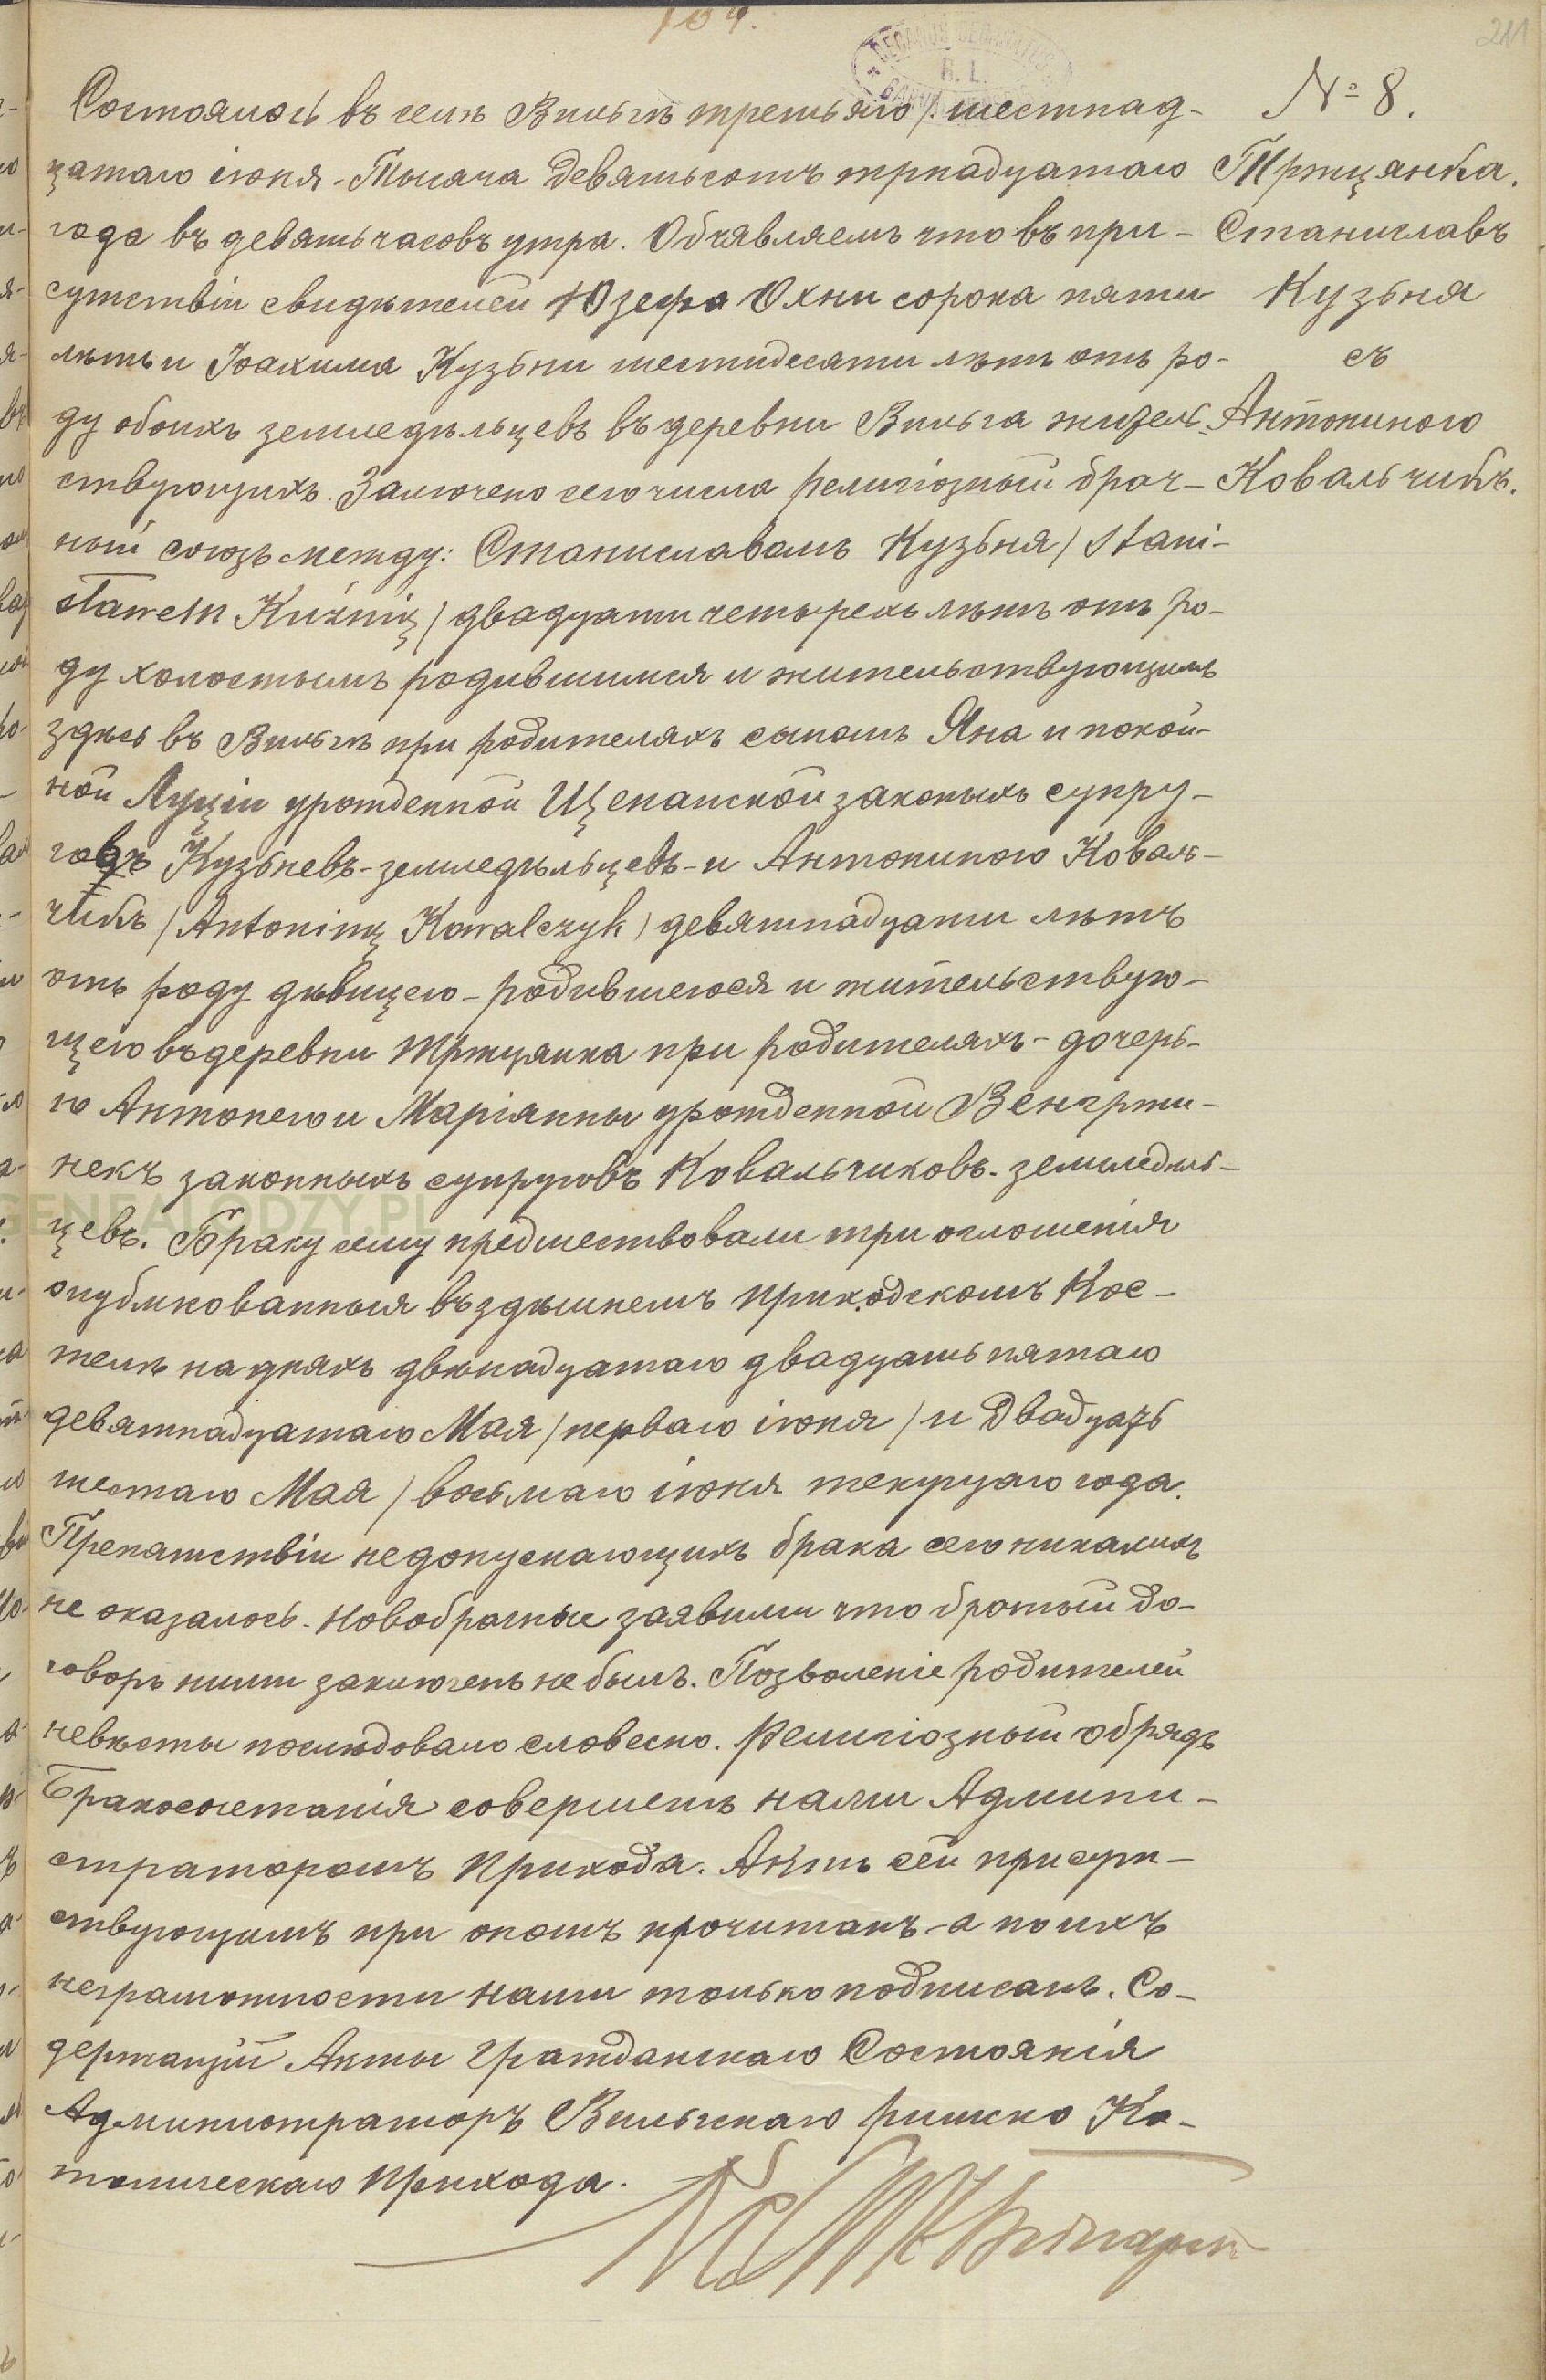 109.
211
DECANUS
R. L.
№ 8.
Тржцянка.
Станиславъ
Кузьня
съ
Антониною
Ковальчикъ.
Состоялось въ селѣ Вильгѣ третьяго /. шестнад-
цатаго іюня - Тысяча девятьсотъ тринадцатаго
года въ девять часовъ утра. Объявляемъ что въ при-
сутствіи свидѣтелей Юзефа Охни сорока пяти
лѣтъ и Іоахима Кузьни шестидесяти лѣтъ отъ ро-
ду обоихъ земледѣльцевъ въ деревни Вильга житель-
ствующихъ. Заключено сего числа религіозный брач-
ный союзъ между: Станиславомъ Кузьня / Stani-
sławem Kuźnią / двадцати четырехъ лѣтъ отъ ро-
ду холостымъ родившимся и жительствующимъ
здѣсь въ Вильгѣ при родителяхъ сыномъ Яна и покой-
ной Луціи урожденной Щепанской законныхъ супру-
говъ Кузьневъ - земледѣльцевъ - и Антониною Коваль-
чикъ / Antoniną Kowalczyk / девятнадцати лѣтъ
отъ роду дѣвицею - родившеюся и жительствую-
щею въ деревни Тржцянка при родителяхъ - дочерь-
ю Антонего и Маріянны урожденной Венгржи-
некъ законныхъ супруговъ Ковальчиковъ - земледѣль-
цевъ. Браку сему предшествовали три оглошенія
опубликованныя въ здѣшнемъ приходскомъ Кос-
телѣ на дняхъ двѣнадцатаго двадцать пятаго
девятнадцатаго Мая / перваго іюня / и Двадцать
шестаго Мая / восьмаго іюня текущаго года.
Препятствіи недопускающихъ брака сего никакихъ
не оказалось. Новобрачные заявили что брачный до-
говоръ ними заключенъ не былъ. Позволеніе родителей
невѣсты послѣдовало словесно. Религіозный обрядъ
Бракосочетанія совершенъ нами Админи-
страторомъ Прихода. Актъ сей присут-
ствующимъ при ономъ прочитанъ - а по ихъ
неграмотности нами только подписанъ. Со-
держащій Акты Гражданскаго Состоянія
Администраторъ Вильгскаго римско Ка-
толическаго Прихода.
GENEALODZY.PL